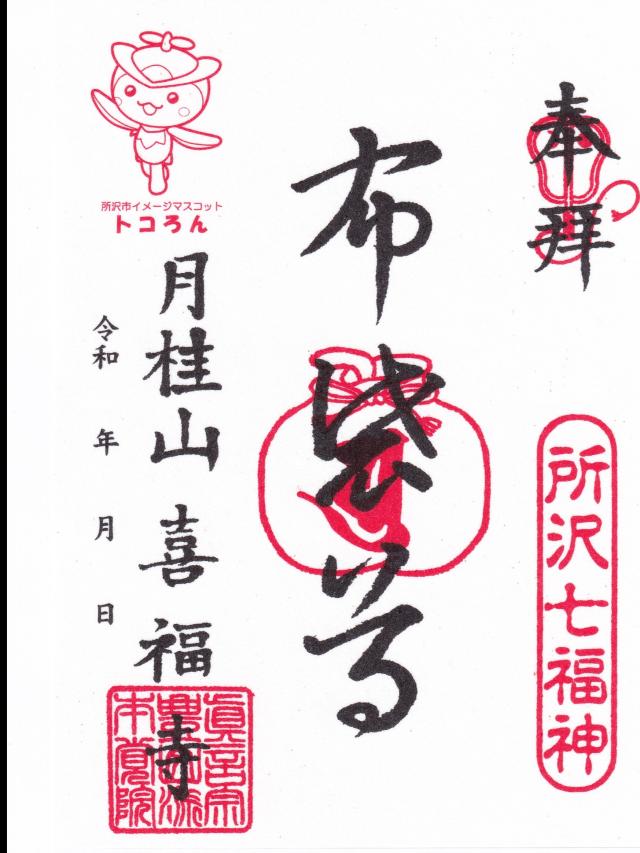 奉拝
所沢七福神
布袋尊
所沢市イメージマスコット
トコろん
月桂山 喜福寺
令和 年 月 日
真言宗
豊山派
本覚院